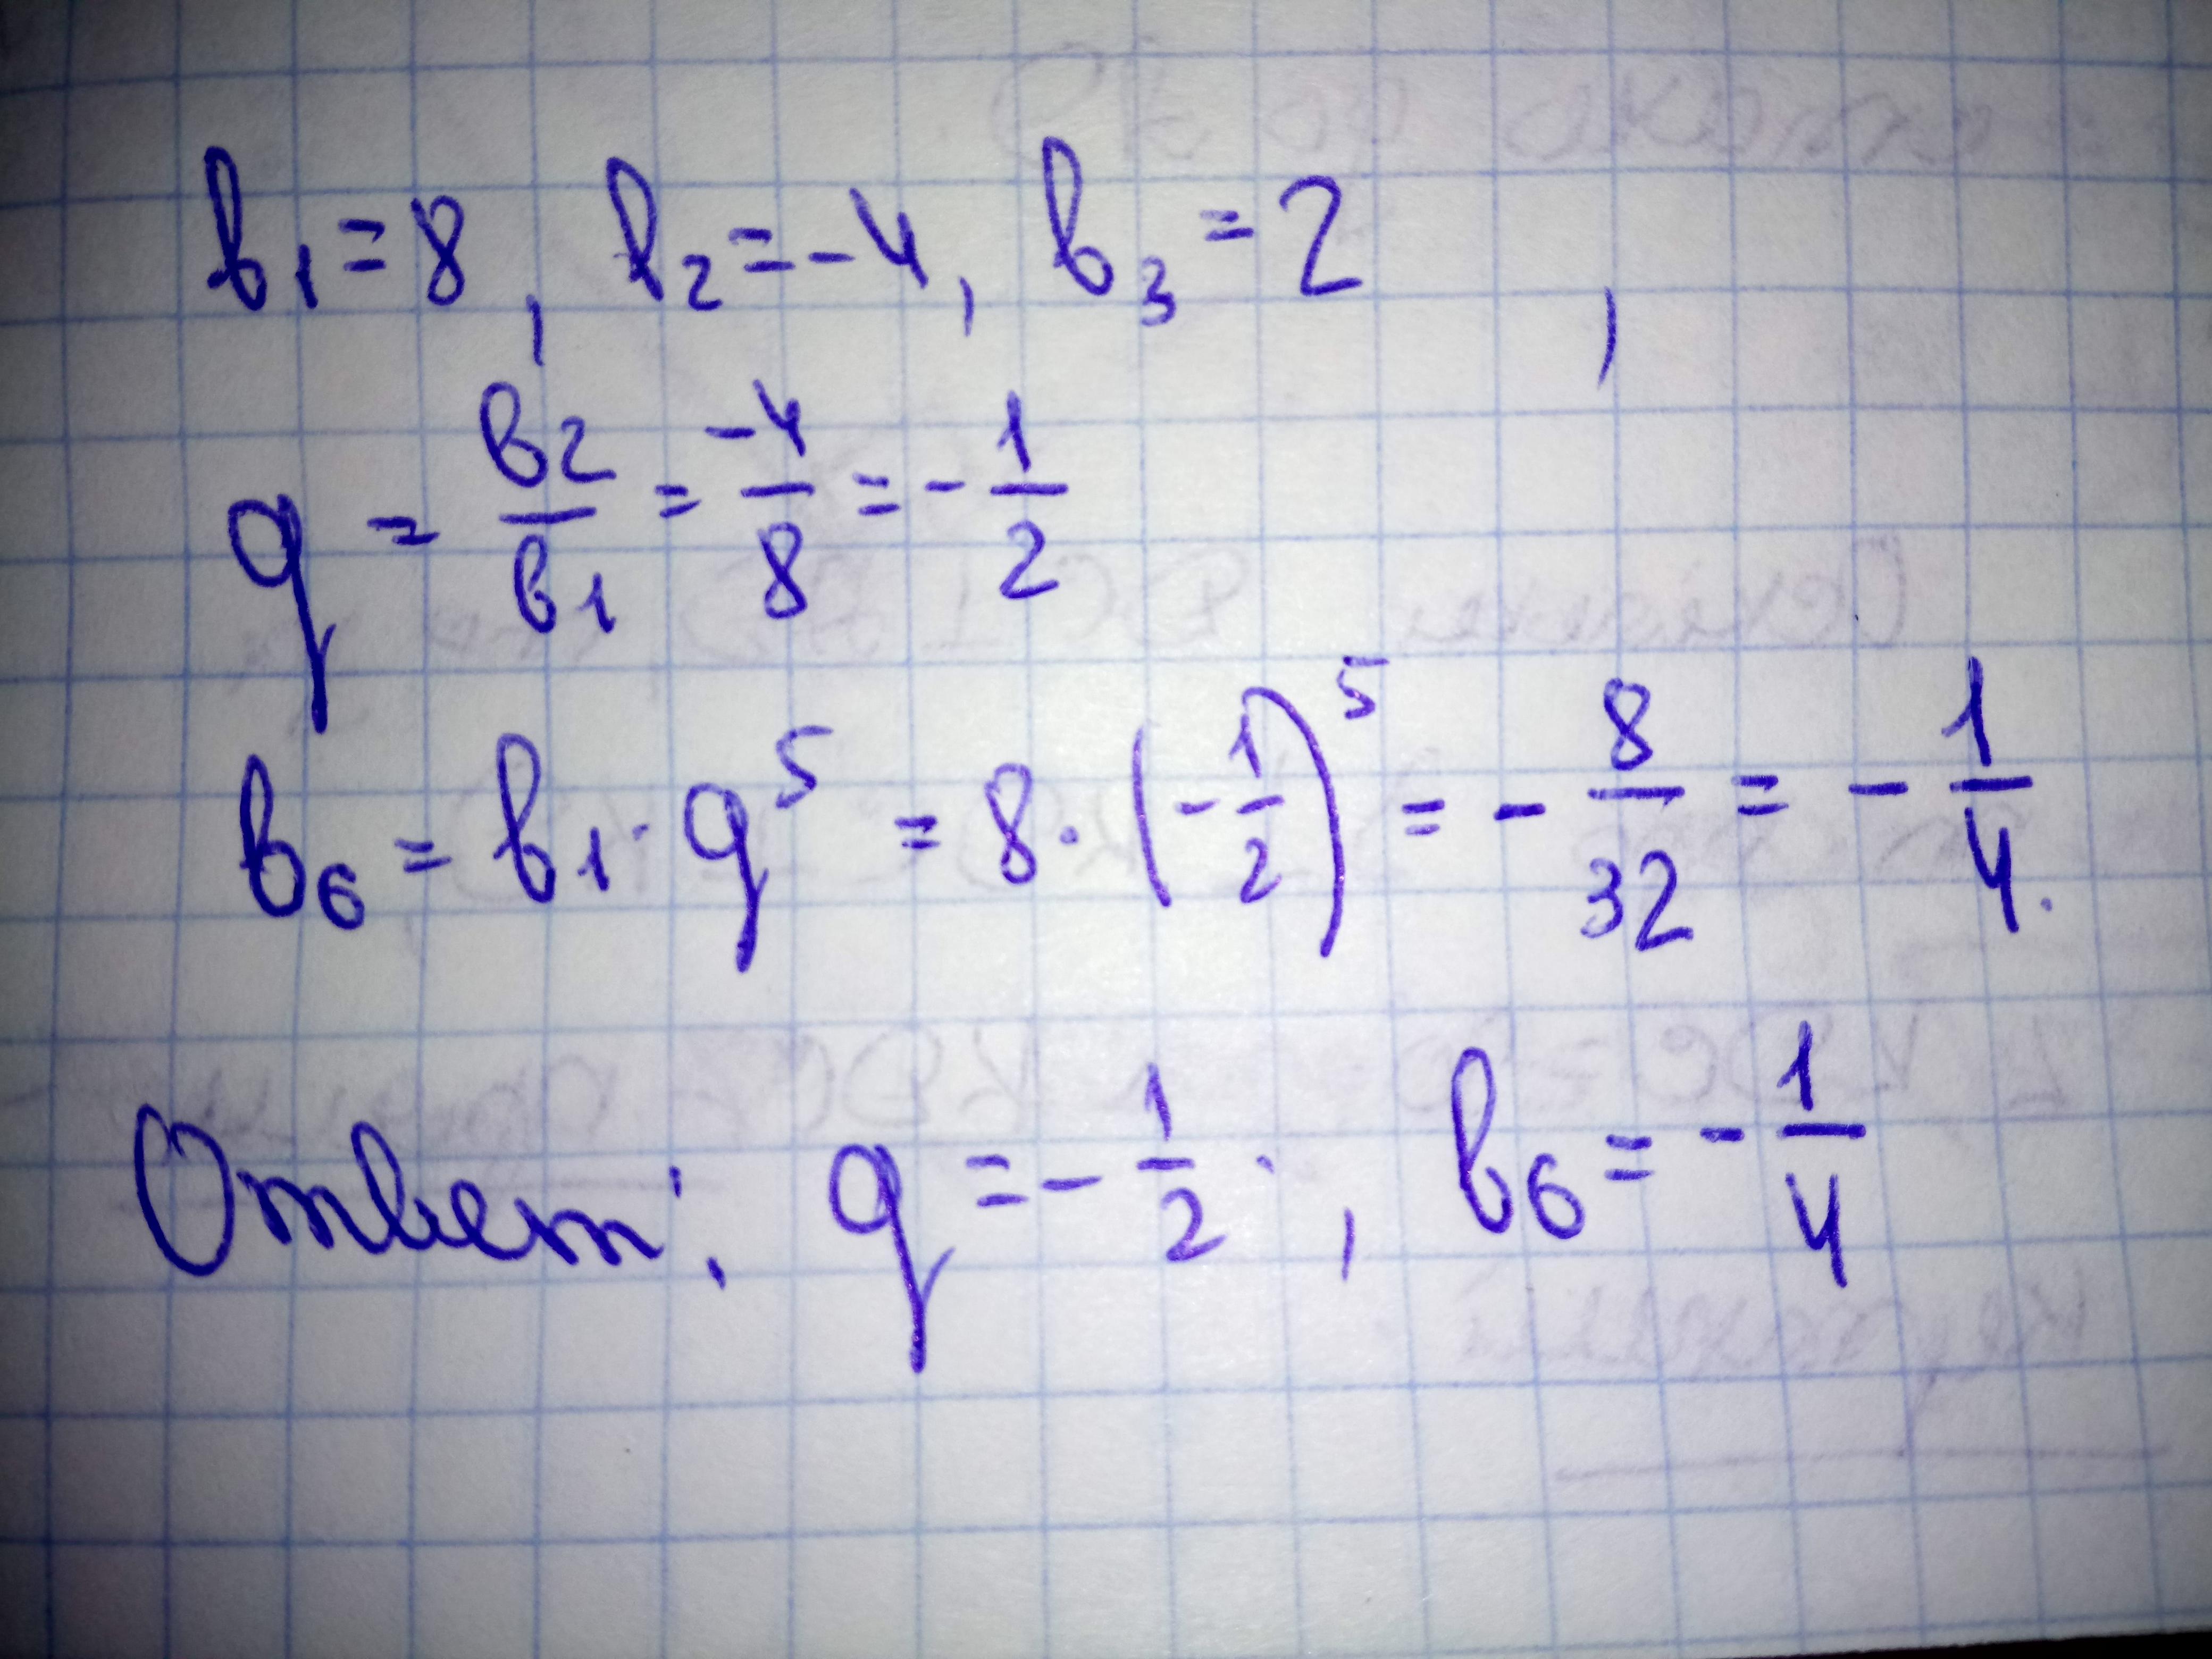 b₁ = 8, b₂ = -4, b₃ = 2 ,
q = b₂/b₁ = -4/8 = - 1/2
b₆ = b₁ · q⁵ = 8 · (-1/2)⁵ = - 8/32 = - 1/4.
Ответ: q = - 1/2, b₆ = - 1/4